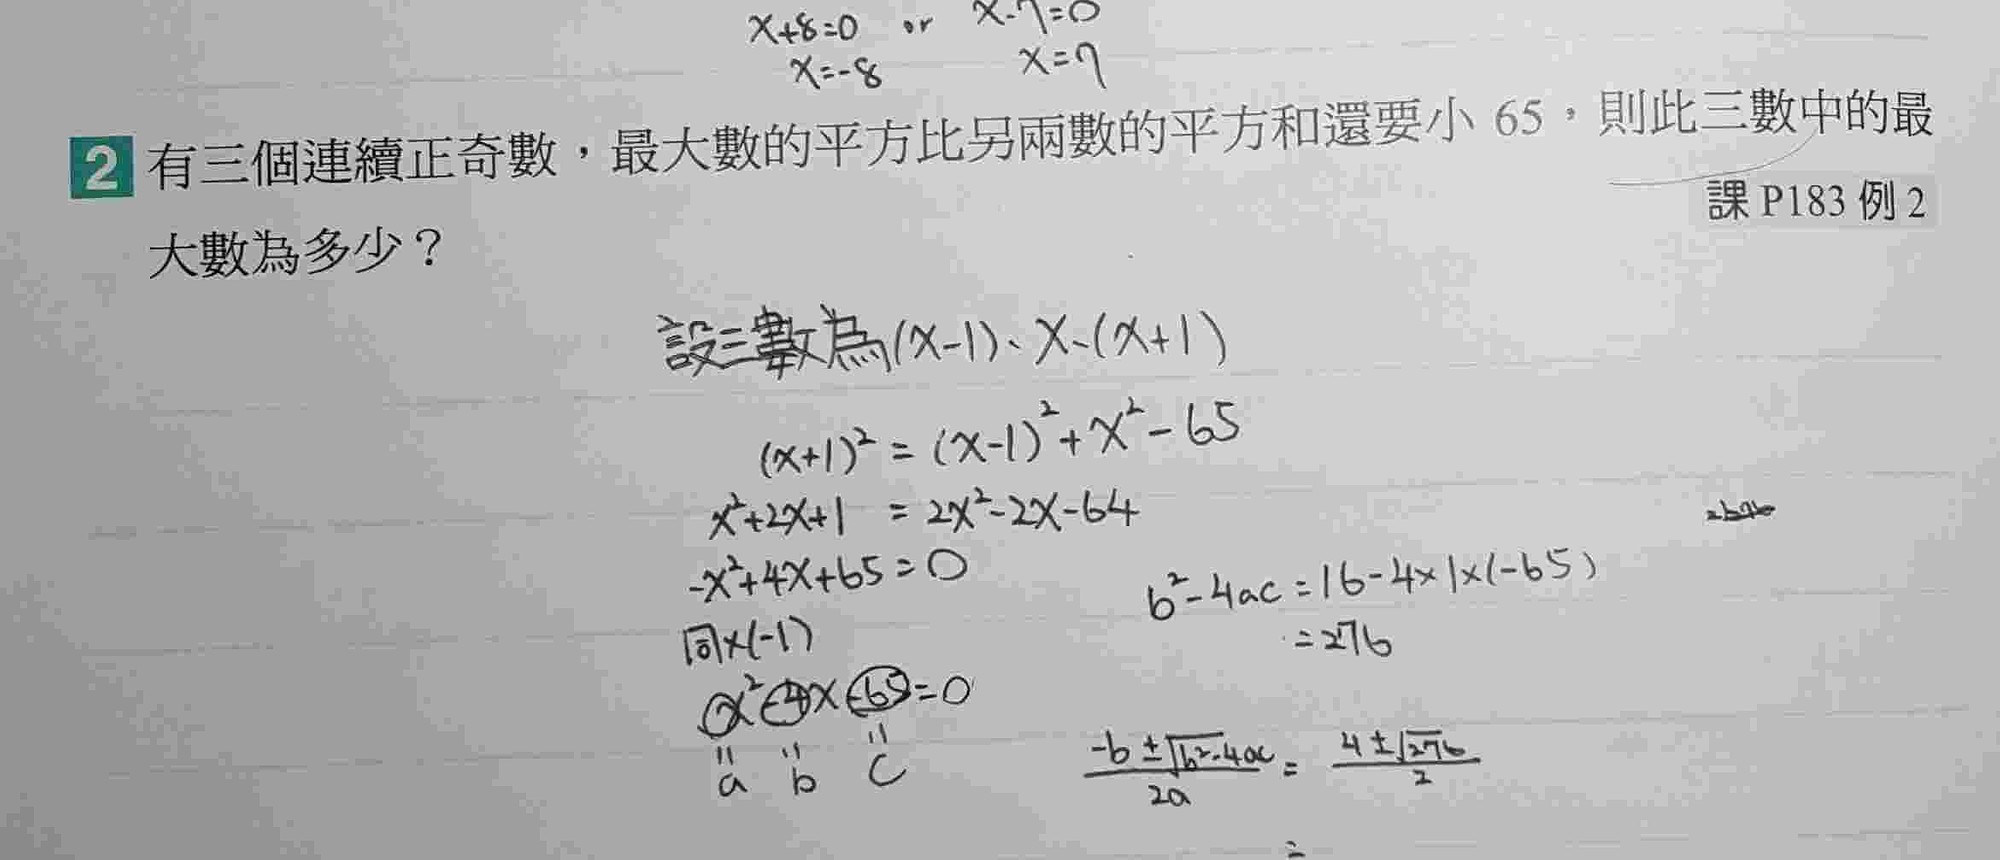 x+8=0 or x-7=0
x=-8 x=7
2 有三個連續正奇數，最大數的平方比另兩數的平方和還要小 65，則此三數中的最
課 P183 例 2
大數為多少？
設三數為(x-1)、x、(x+1)
(x+1)²=(x-1)²+x²-65
x²+2x+1 =2x²-2x-64
-x²+4x+65=0
b²-4ac=16-4×1×(-65)
同×(-1)
=276
x²-4x-65=0
" " "
a b c
-b±√b²-4ac/2a = 4±√276/2
=